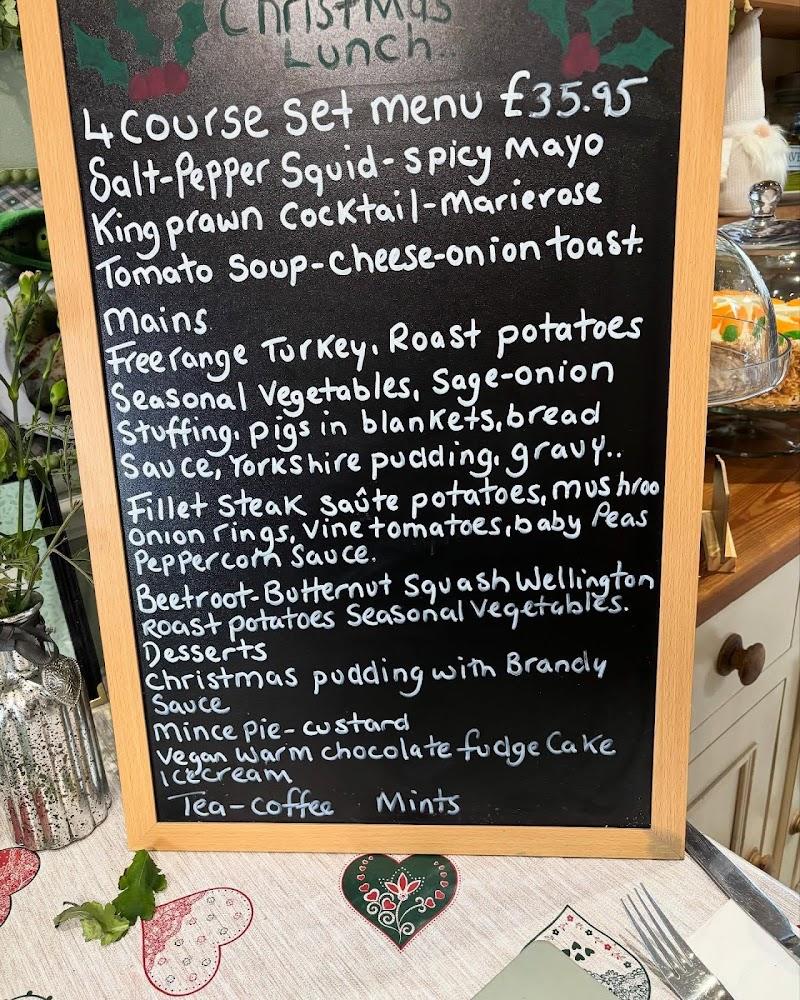 Christmas
Lunch..
4 course set menu £35.95
Salt-Pepper Squid-spicy mayo
King prawn Cocktail-Marierose
Tomato Soup-cheese-onion toast.
Mains
Free range Turkey, Roast potatoes
Seasonal Vegetables, Sage-onion
Stuffing, pigs in blankets, bread
Sauce, Yorkshire pudding, gravy..
Fillet steak saûte potatoes, mushroo
onion rings, vine tomatoes, baby Peas
Peppercorn Sauce.
Beetroot-Butternut Squash Wellington
Roast potatoes Seasonal Vegetables.
Desserts
Christmas pudding with Brandy
Sauce
Mince pie-custard
Vegan warm chocolate fudge Cake
Icecream
Tea-coffee Mints